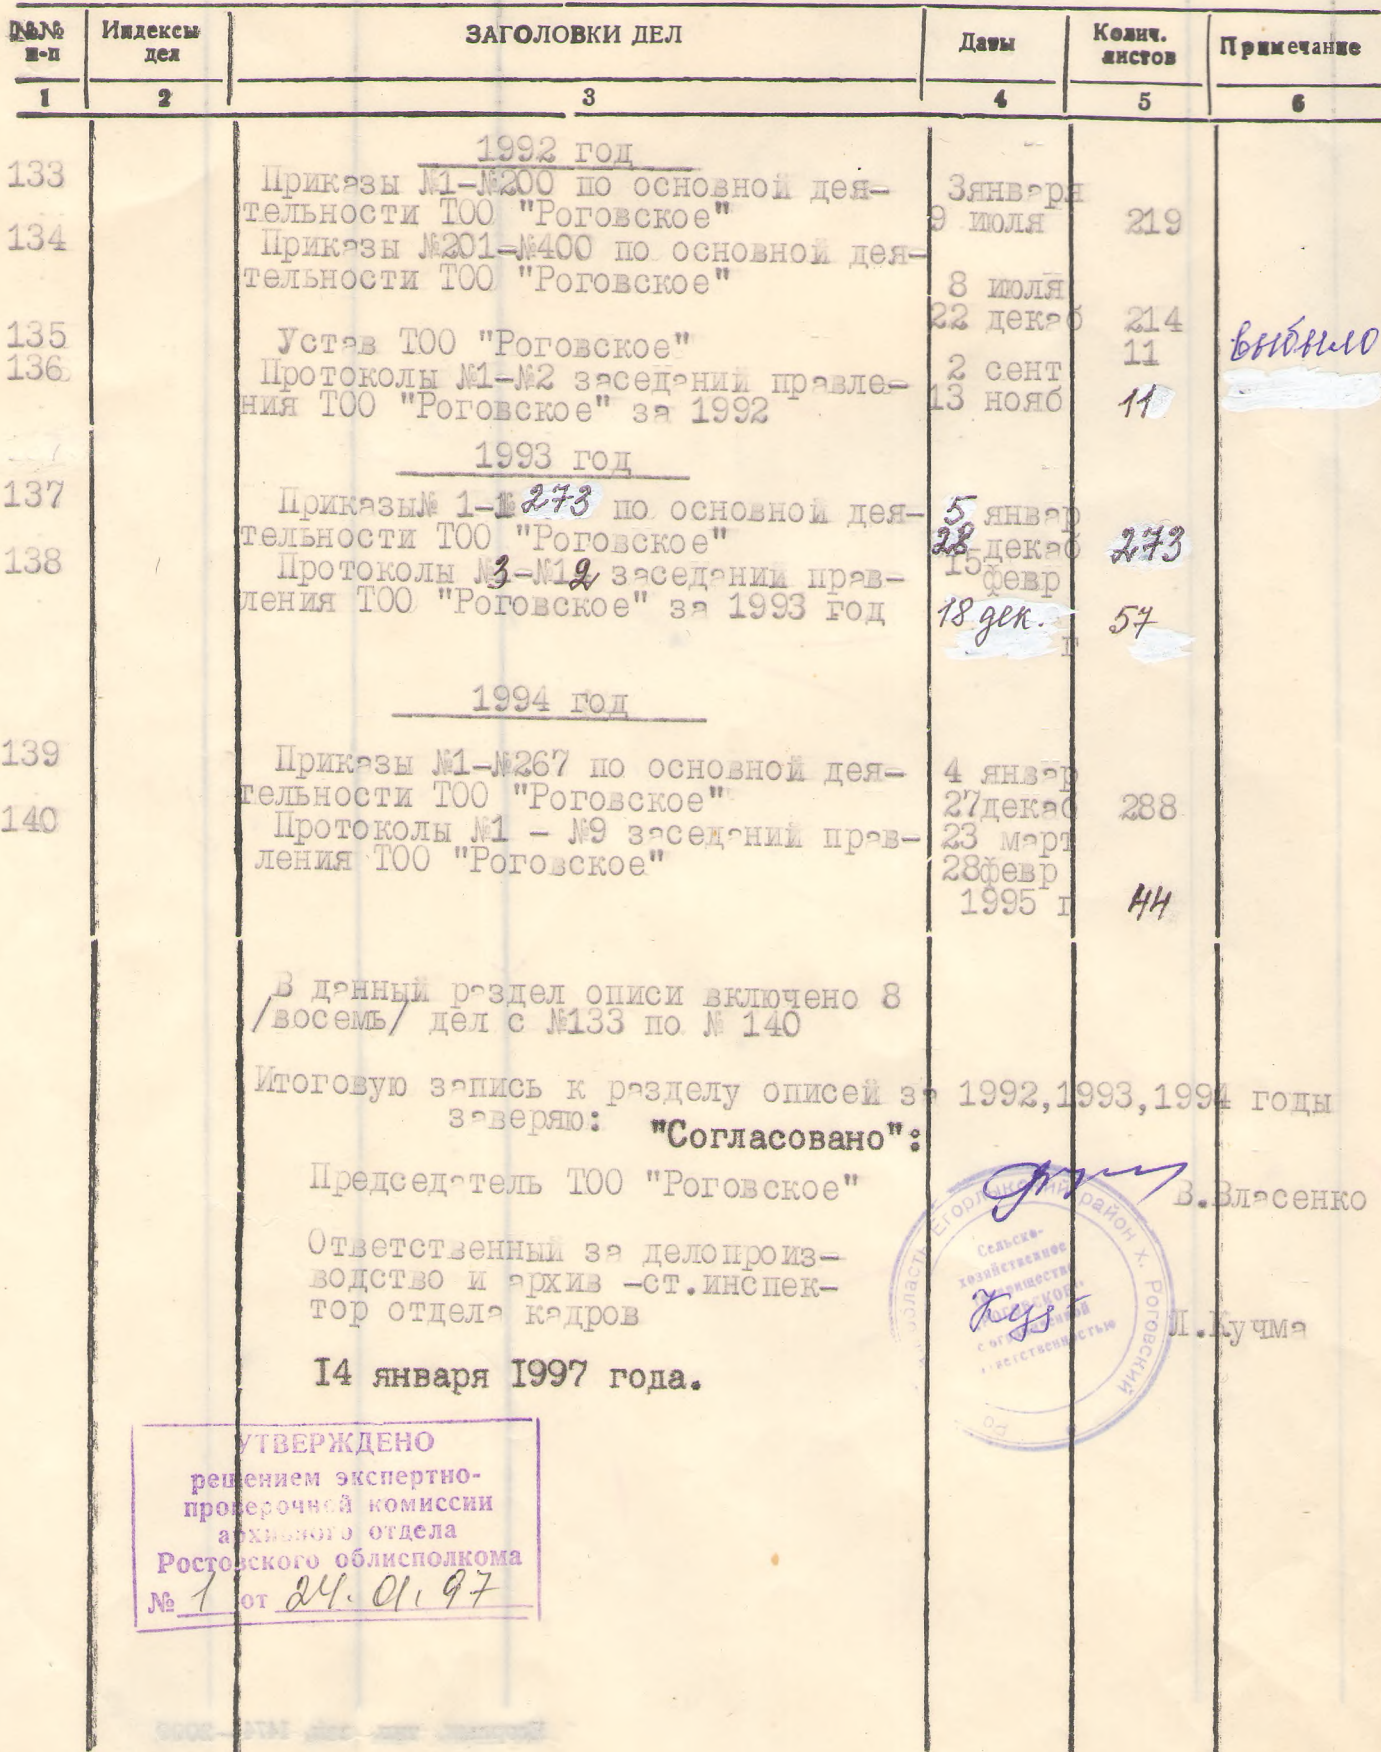 №№ п-п Индексы дел ЗАГОЛОВКИ ДЕЛ Даты Колич. листов Примечание
1 2 3 4 5 6
1992 год
133 Приказы №1-№200 по основной дея- 3января
тельности ТОО "Роговское" 9 июля 219
134 Приказы №201-№400 по основной дея-
тельности ТОО "Роговское" 8 июля
22 декаб 214
135 Устав ТОО "Роговское" 11 выбыло
136 Протоколы №1-№2 заседаний правле- 2 сент
ния ТОО "Роговское" за 1992 13 нояб 11
1993 год
137 Приказы№ 1-№273 по основной дея- 5 январ
тельности ТОО "Роговское" 28 декаб 273
138 Протоколы №3-№12 заседаний прав- 15 февр
ления ТОО "Роговское" за 1993 год 18 дек. 57
г
1994 год
139 Приказы №1-№267 по основной дея- 4 январ
тельности ТОО "Роговское" 27декаб 288
140 Протоколы №1 - №9 заседаний прав- 23 март
ления ТОО "Роговское" 28февр
1995 г 44
В данный раздел описи включено 8
/восемь/ дел с №133 по № 140
Итоговую запись к разделу описей за 1992,1993,1994 годы
заверяю: "Согласовано":
Председатель ТОО "Роговское" В.Власенко
Ответственный за делопроиз-
водство и архив -ст.инспек-
тор отдела кадров Л.Кучма
14 января 1997 года.
область Егорлыкский район х. Роговский
Сельско-
хозяйственное
товарищество
с ограниченной
ответственностью
УТВЕРЖДЕНО
решением экспертно-
проверочной комиссии
архивного отдела
Ростовского облисполкома
№ 1 от 24.01.97